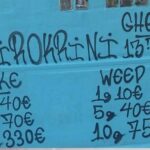 GHE
IROKRINI 13
KE WEED
40€ 1g 10€
70€ 5g 40€
330€ 10g 75